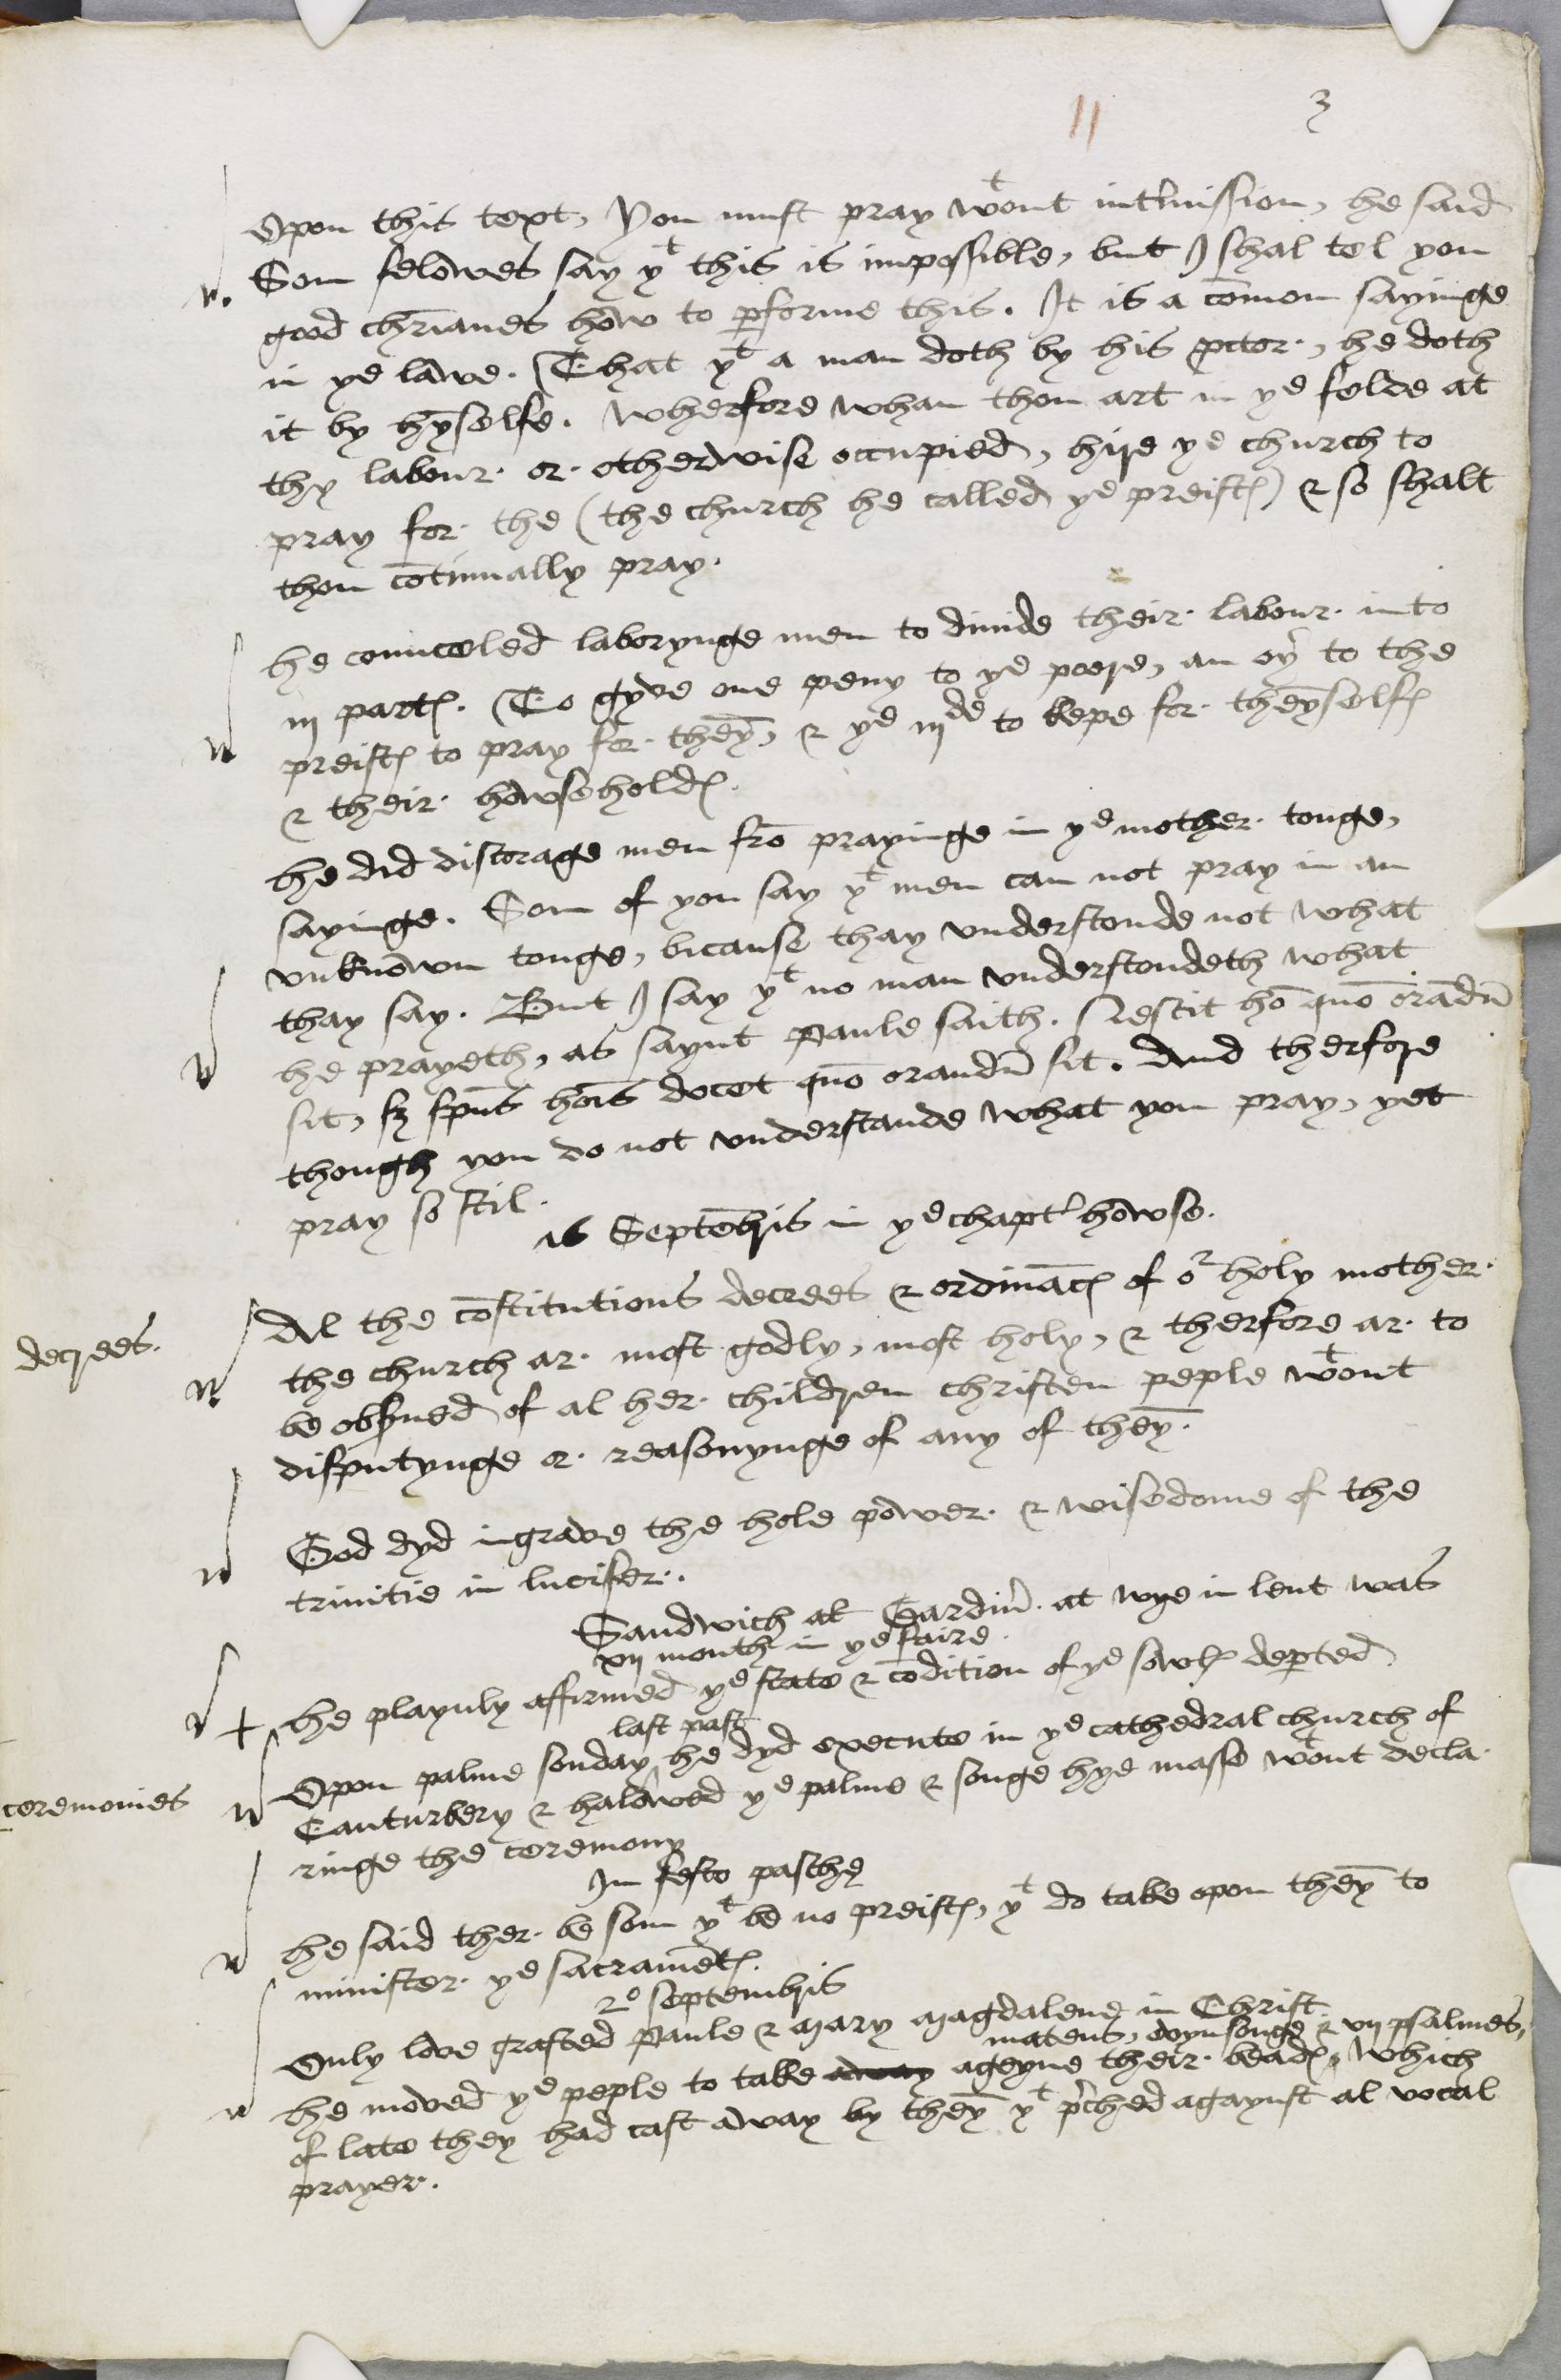 11 3
Opon this text, You must pray wͭout int'mission, he said
Som felowes say yͭ this is impossible, but I shal tel you
good chrīanes how to ꝑforme this. It is a cōmon sayinge
in yᵉ lawe. That yͭ a man doth by his ꝓctor, he doth
it by hȳselfe. Wherfore whan thou art in yᵉ felde at
thy labour or otherwise occupied, hire yᵉ church to
pray for the (the church he called yᵉ preistꝭ) & so shalt
thou cōtinually pray.
he counceled laborynge men to diuide their labour into
iij partꝭ. To gyve one peny to yᵉ poore, an oy' to the
preistꝭ to pray for theȳ, & yᵉ iijᵈᵉ to kepe for theȳselfꝭ
& their howseholdꝭ.
he did discorage men frō prayinge in yᵉ mother tonge,
sayinge. Som of you say yͭ men can not pray in an
vnknown tonge, bicause thay vnderstonde not what
thay say. But I say yͭ no man vnderstondeth what
he prayeth, as saynt Paule saith. Nescit hō quō orādū
sit, sꝫ spūs hoīs docet quō orandū sit. And therfore
though you do not vnderstande what you pray, yet
pray so stil.
16 Septēbris in yᵉ chapt' howse.
decrees.
Al the cōstitutions decrees & ordinācꝭ of oʳ holy mother
the church ar most godly, most holy, & therfore ar to
be obsꝰued of al her children christen peple wͭout
disputynge or reasonynge of any of theȳ.
God dyd ingrave the hole power & wisedome of the
trinitie in lucifer.
Sandwich at Gardin' at wye in lent was
xij month in yᵉ faire
+ he playnly affirmed yᵉ state & cōdition of yᵉ sowlꝭ deꝑted
last past
Opon palme sonday, he dyd execute in yᵉ cathedral church of
ceremonies
Canturbery & halowed yᵉ palme & songe hye masse wͭout decla
ringe the ceremony
In festo paschę
he said ther be som yͭ be no preistꝭ, yͭ do take opon theȳ to
minister yᵉ sacramētꝭ.
2º septembris
Only love grafted Paule & Mary Magdalene in Christ
matens, evynsonge & vij psalmes,
he moved yᵉ peple to take away ageyne their beadꝭ, which
of late they had cast away by theȳ yͭ p'ched agaynst al vocal
prayer.